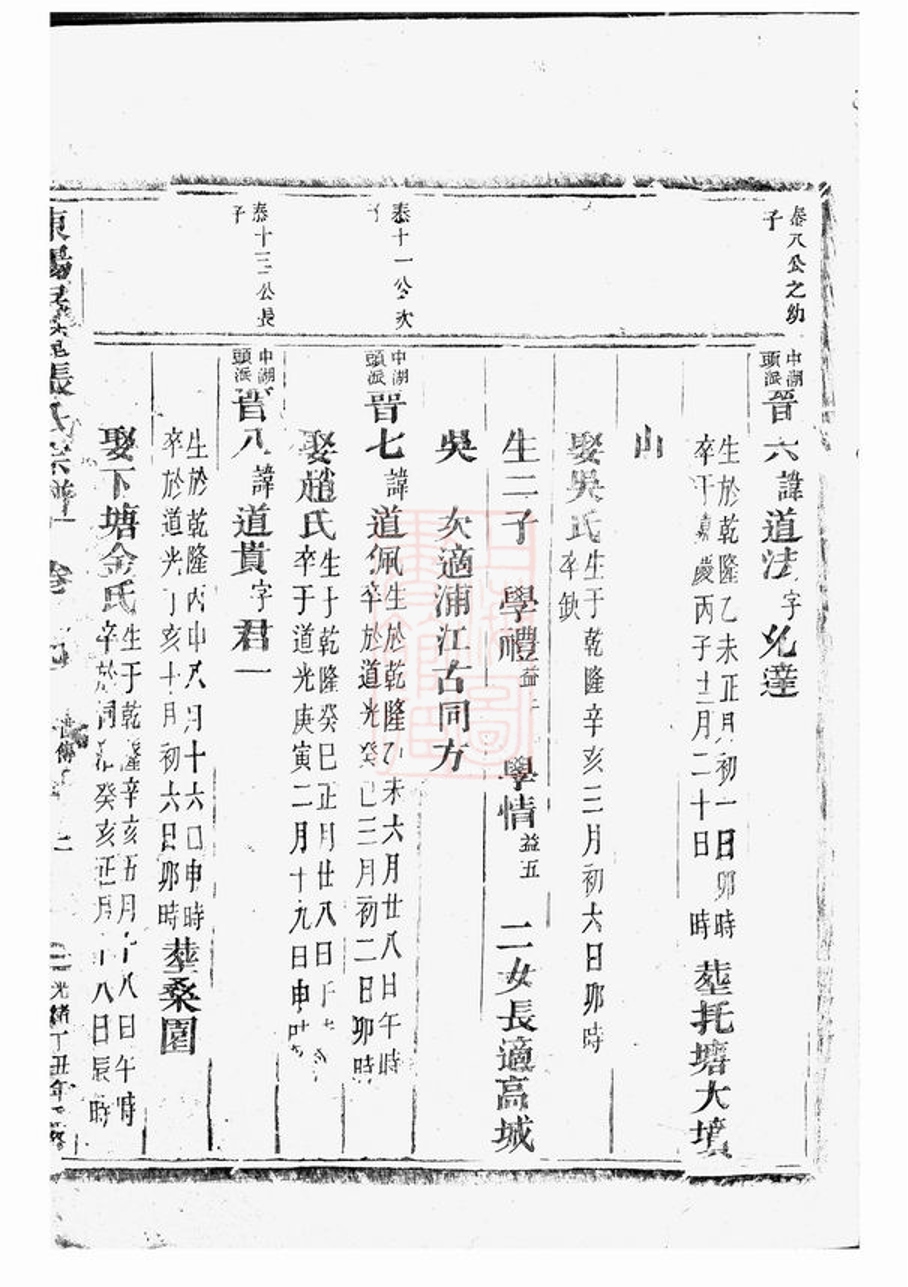 泰八公之幼
子
中湖
頭派
晉六諱道法字兆達
生於乾隆乙未正月初一日卯時
卒于嘉慶丙子十二月二十日 時
葬托塘大墳
山
娶吳氏
生于乾隆辛亥三月初六日卯時
卒缺
生二子 學禮益 學情益五 二女長適高城
吳 次適浦江古同方
泰十一公次
子
中湖
頭派
晉七諱道佩
生於乾隆乙未六月廿八日午時
卒於道光癸巳三月初二日卯時
娶趙氏
生于乾隆癸巳正月廿八日
卒于道光庚寅二月十九日申時
泰十三公長
子
中湖
頭派
晉八諱道貴字君一
生於乾隆丙申八月十六日申時
卒於道光丁亥十月初六日卯時
葬桑園
娶下塘金氏
生于乾隆辛亥五月 八日午時
卒於同治癸亥正月十八日辰時
東陽 張氏宗譜 卷 世傳 光緒丁丑年 修